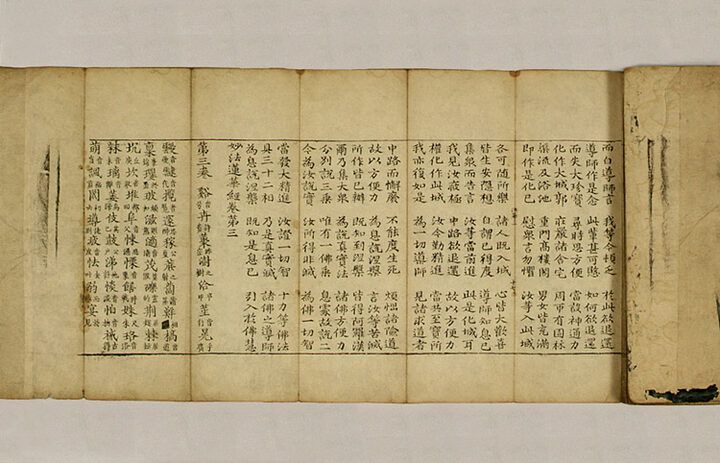 而白導師言 我等今頓乏 於此欲退還
導師作是念 此輩甚可愍 如何欲退還
而失大珍寶 尋時思方便 當設神通力
化作大城郭 莊嚴諸舍宅 周帀有園林
渠流及浴池 重門高樓閣 男女皆充滿
即作是化已 慰眾言勿懼 汝等入此城
各可隨所樂 諸人既入城 心皆大歡喜
皆生安隱想 自謂已得度 導師知息已
集眾而告言 汝等當前進 此是化城耳
我見汝疲極 中路欲退還 故以方便力
權化作此城 汝今勤精進 當共至寶所
我亦復如是 為一切導師 見諸求道者
中路而懈廢 不能度生死 煩惱諸險道
故以方便力 為息說涅槃 言汝等苦滅
所作皆已辦 既知到涅槃 皆得阿羅漢
爾乃集大眾 為說真實法 諸佛方便力
分別說三乘 唯有一佛乘 息處故說二
今為汝說實 汝所得非滅 為佛一切智
當發大精進 汝證一切智 十力等佛法
具三十二相 乃是真實滅 諸佛之導師
為息說涅槃 既知是息已 引入於佛慧
妙法蓮華經卷第三
第三卷 谿 卉
稼
璃 玻 荊棘
坑坎堆阜 悚
瓦 鼓
萌